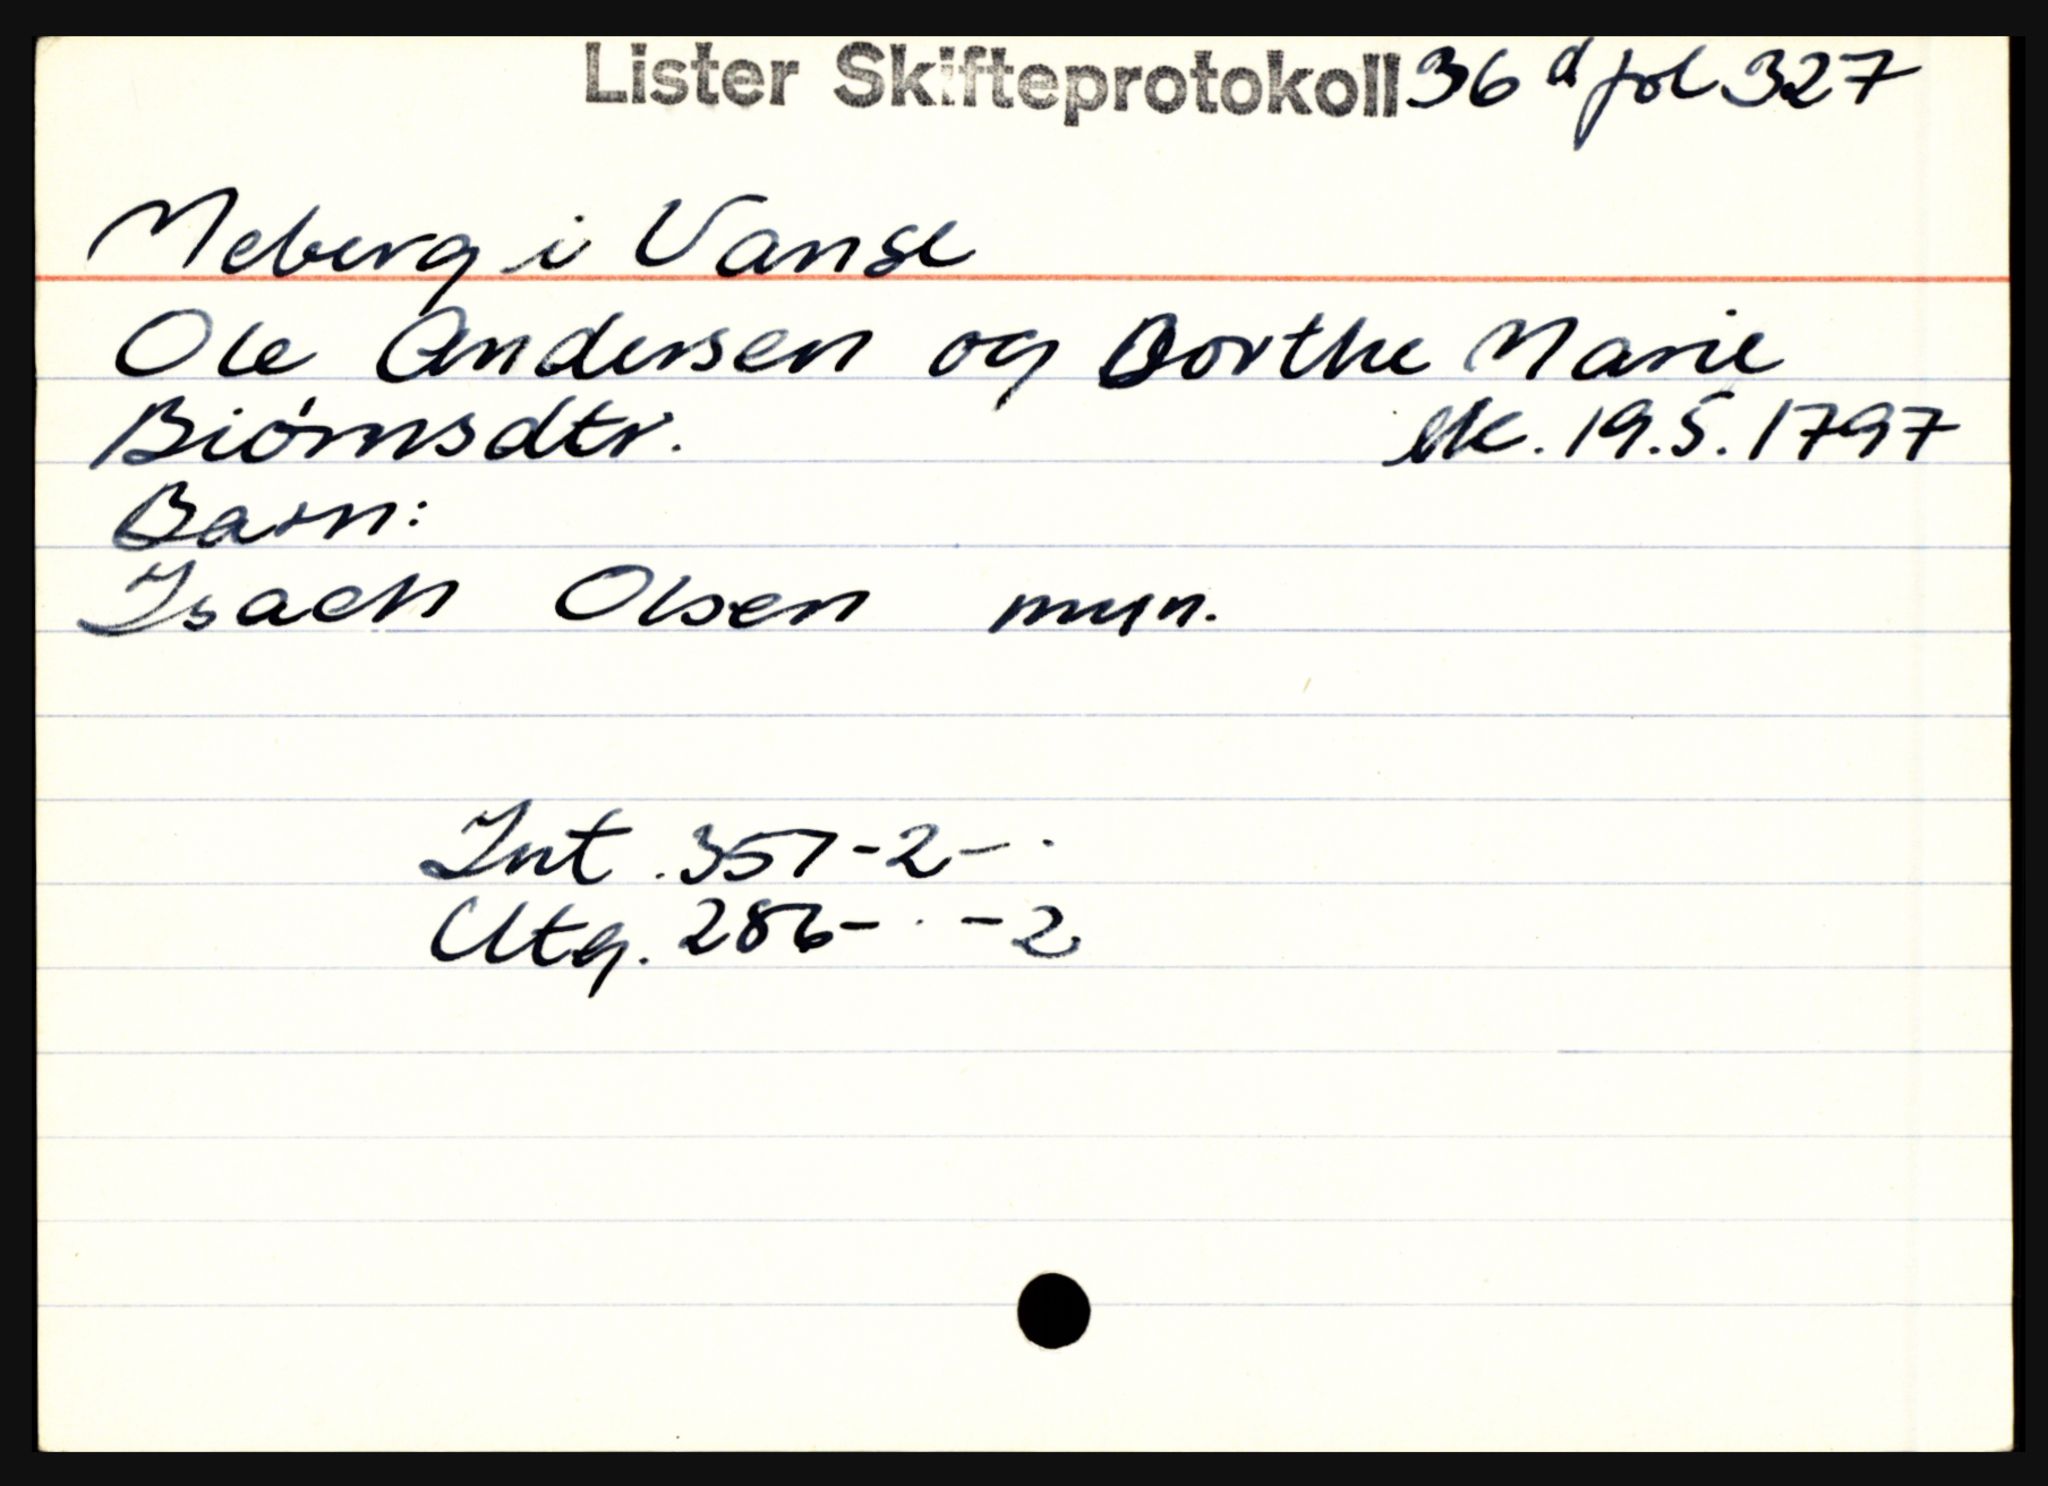 Lister Skifteprotokoll 36 d fol 327
Meberg i Vanse
Ole Andersen og Dorthe Marie
Biörnsdtr. ek. 19.5.1797
Barn:
Isach Olsen myn.
Int. 357-2-·
Utg. 286-·-2